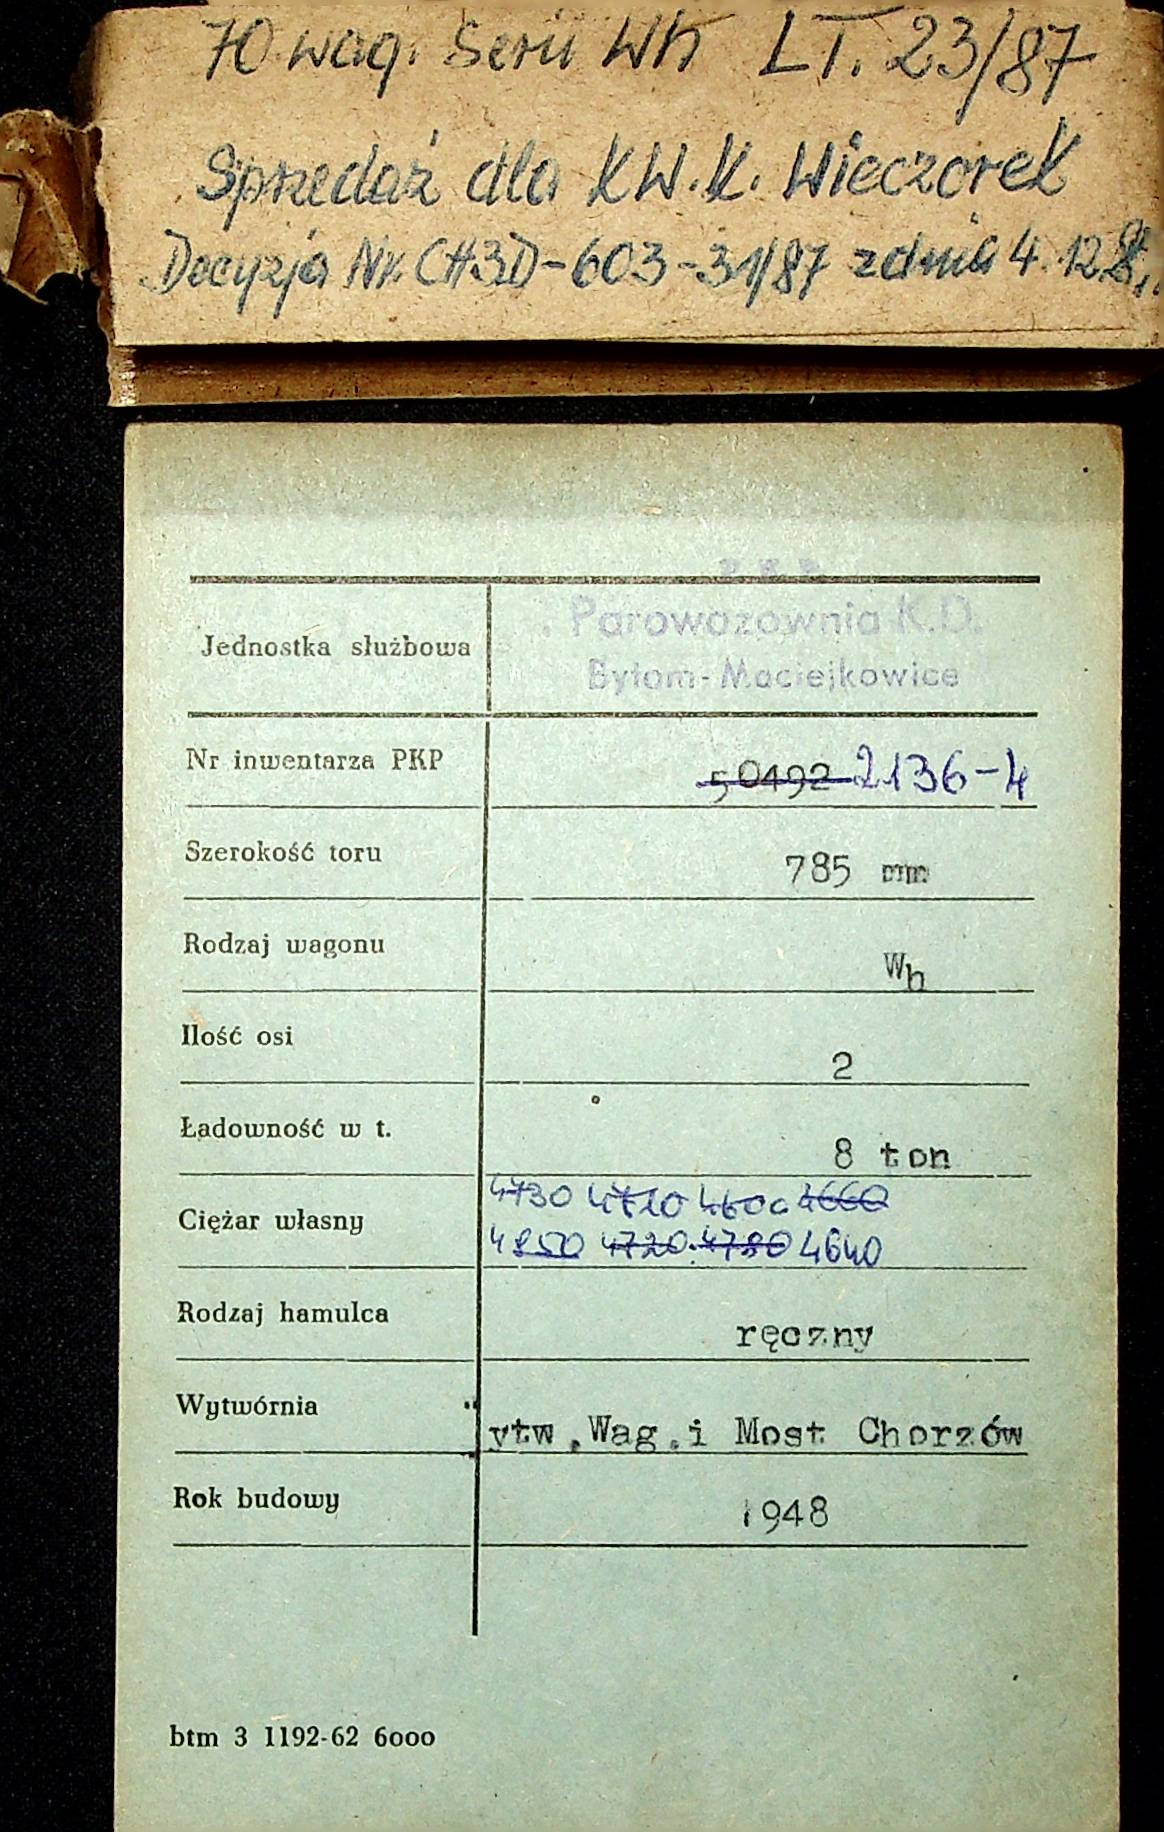 70 wag. Serii Wh LT. 23/87
Sprzedaż dla KW.K. Wieczorek
Decyzja Nr. CH3D-603-31/87 z dnia 4.12.8
P.K.P.
Parowozownia K.D.
Bytom-Maciejkowice
Jednostka służbowa
Nr inwentarza PKP 50492 2136-4
Szerokość toru 785 mm
Rodzaj wagonu Wh
Ilość osi 2
Ładowność w t. 8 ton
4730 4710 4600 4660
Ciężar własny
4850 4720 4780 4640
Rodzaj hamulca ręczny
Wytwórnia ytw.Wag.i Most Chorzów
Rok budowy 1948
btm 3 1192-62 6000